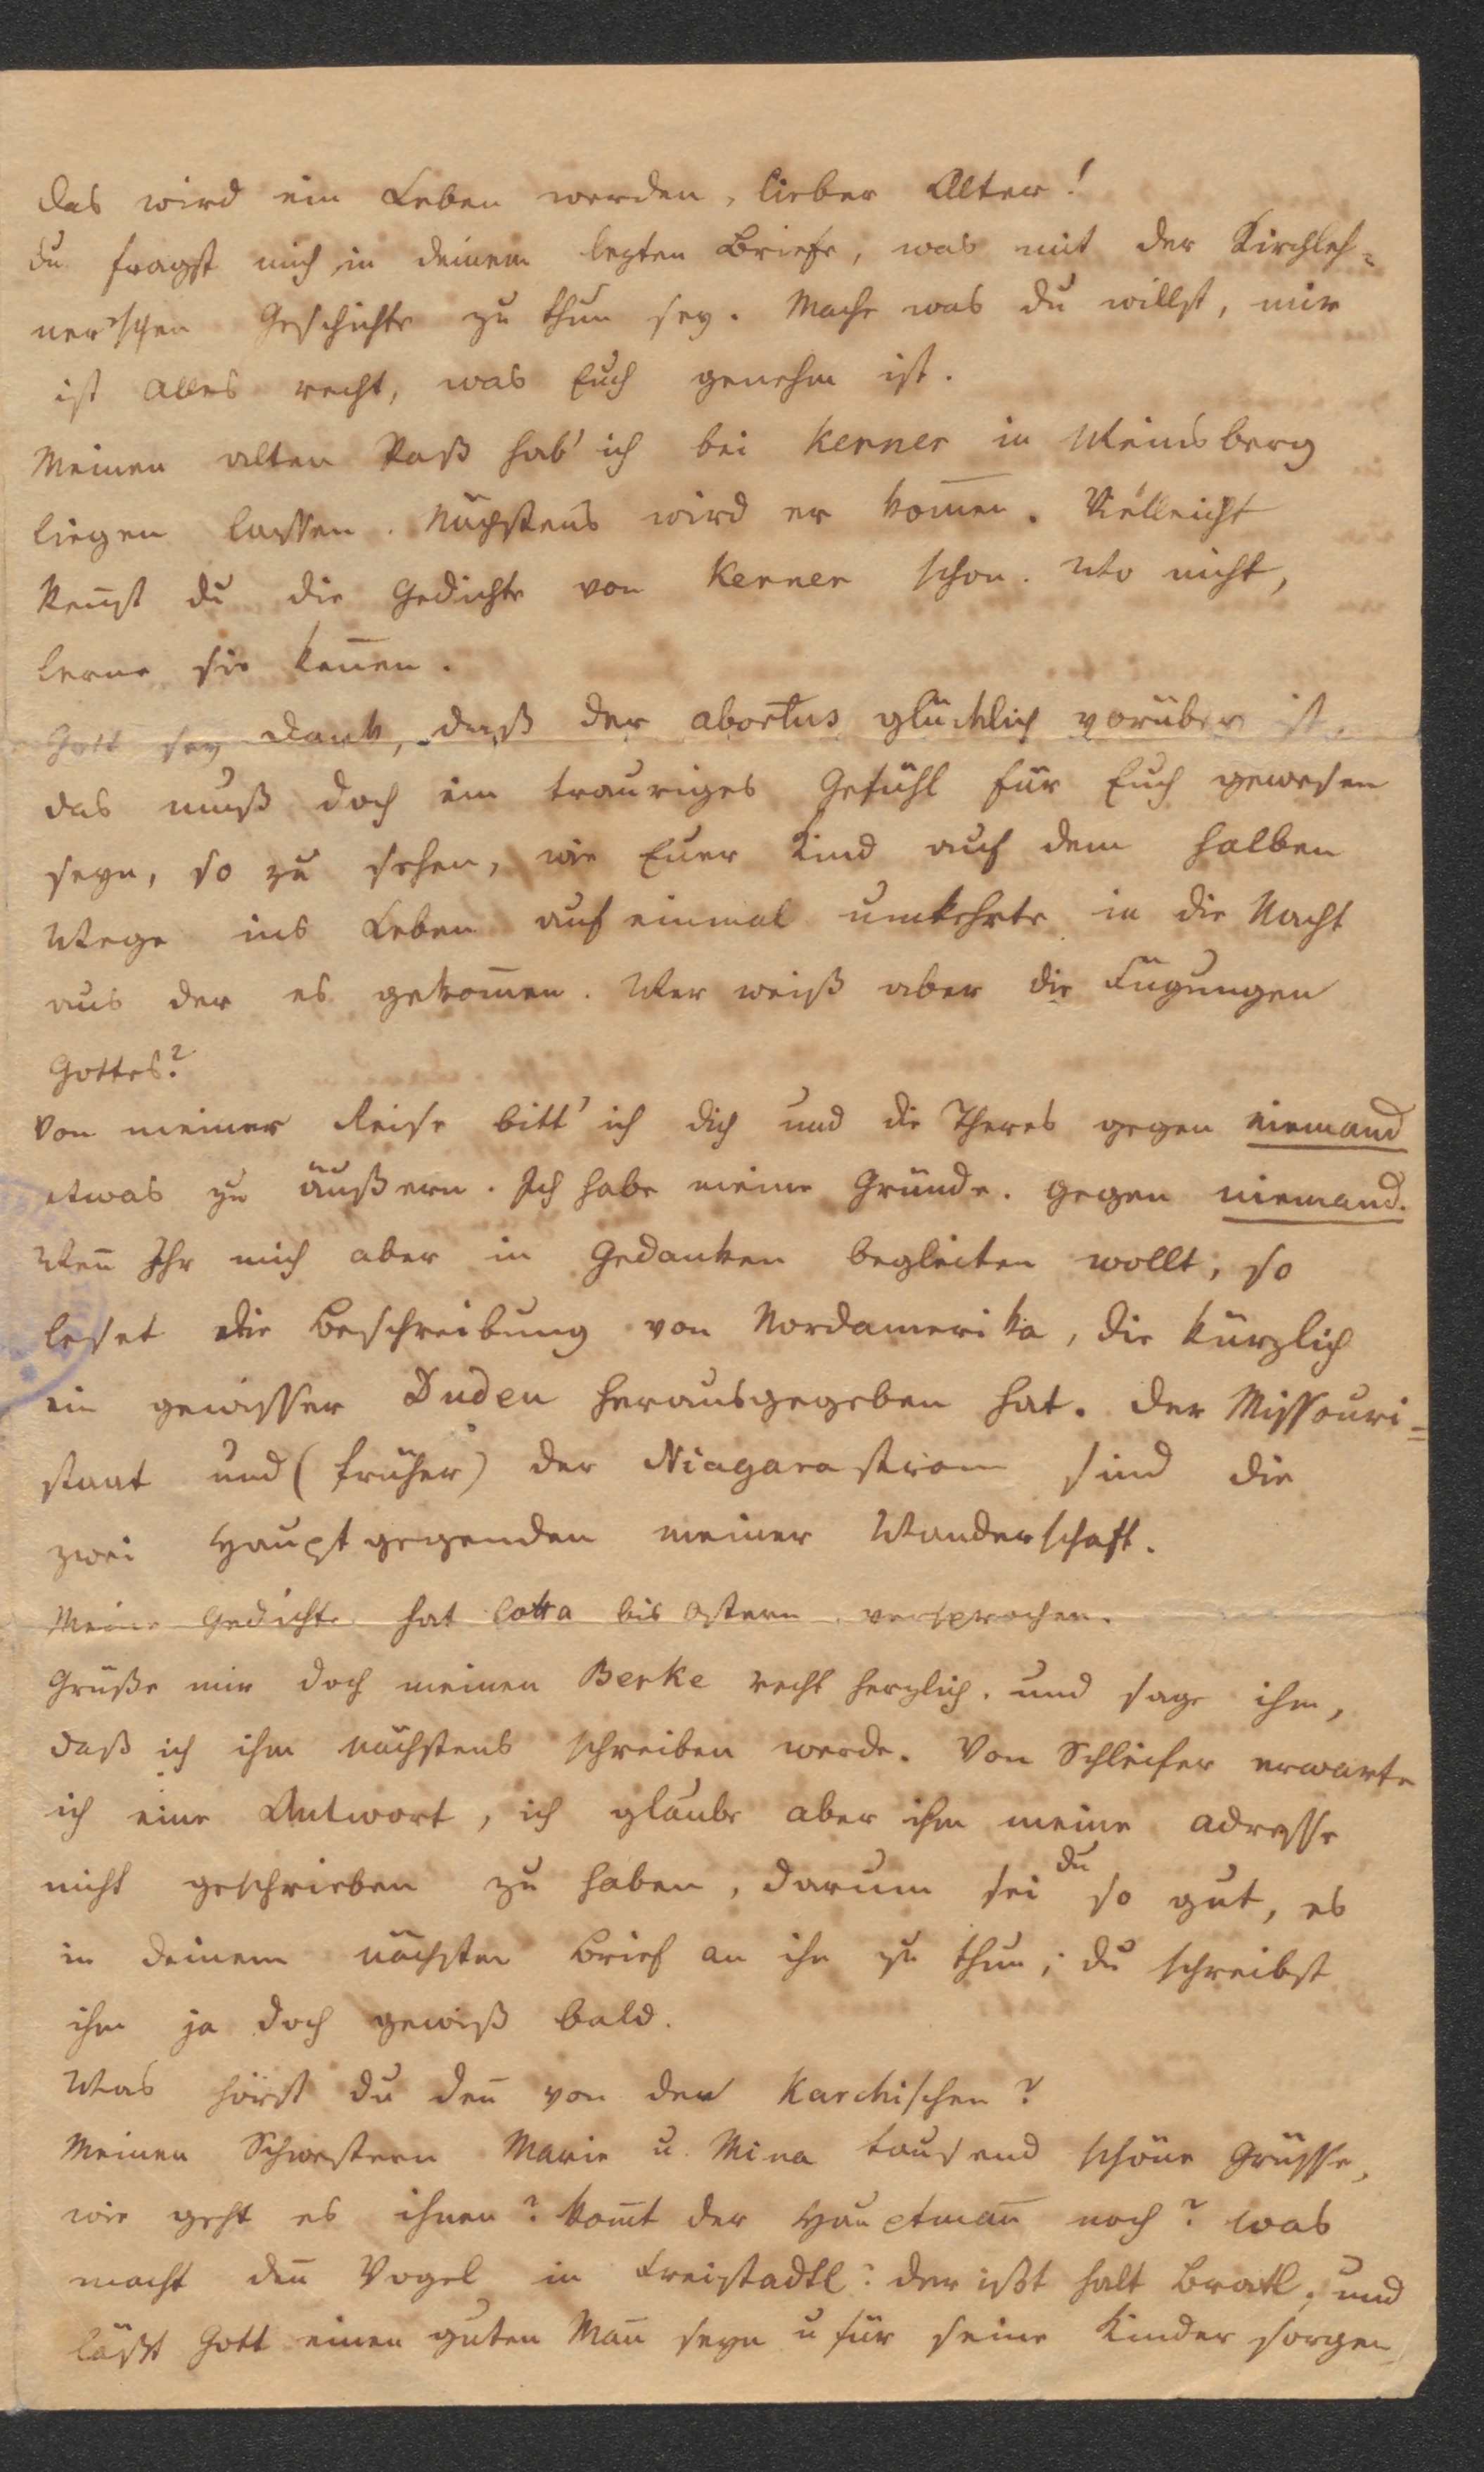 das wird ein Leben werden, lieber Alter!
du fragst mich in deinem lezten Briefe, was mit der Kirchleh=
ner'schen Geschichte zu thun sey. Mache was du willst, mir
ist alles recht, was Euch genehm ist.
Meinen alten Paß hab' ich bei Kerner in Weinsberg
liegen lassen. Nächstens wird er kom̄en. Vielleicht
ken̄st du die Gedichte von Kerner schon. Wo nicht,
lerne sie ken̄en.
Gott sey Dank, daß der abortus glücklich vorüber ist.
das muß doch ein trauriges Gefühl für Euch gewesen
seyn, so zu sehen, wie Euer Kind auf dem halben
Wege ins Leben auf einmal umkehrte in die Nacht
aus der es gekom̄en. Wer weiß aber die Fügungen
Gottes?
Von meiner Reise bitt' ich dich und die Theres gegen niemand
etwas zu äußern. Ich habe meine Gründe. gegen niemand.
Wen̄ Ihr mich aber in Gedanken begleiten wollt, so
leset die Beschreibung von Nordamerika, die kürzlich
ein gewisser Duden herausgegeben hat. Der Missouri=
staat und (früher) der Niagarastrom sind die
zwei Hauptgegenden meiner Wanderschaft.
Meine Gedichte hat Cotta bis Ostern versprochen.
Grüße mir doch meinen Berke recht herzlich. und sage ihm,
daß ich ihm nächstens schreiben werde. Von Schleifer erwarte
ich eine Antwort, ich glaube aber ihm meine adresse
nicht geschrieben zu haben, darum sei du so gut, es
in deinem nächsten Brief an ihn zu thun; du schreibst
ihm ja doch gewiß bald.
Was hörst du den̄ von den Karchischen?
Meinen Schwestern Marie u. Mina tausend schöne Grüsse,
wie geht es ihnen? kom̄t der Hauptman̄ noch? was
macht den̄ Vogel in Freistadtl? der ißt halt Bratl, und
läßt Gott einen guten Man̄ seyn u für seine Kinder sorgen